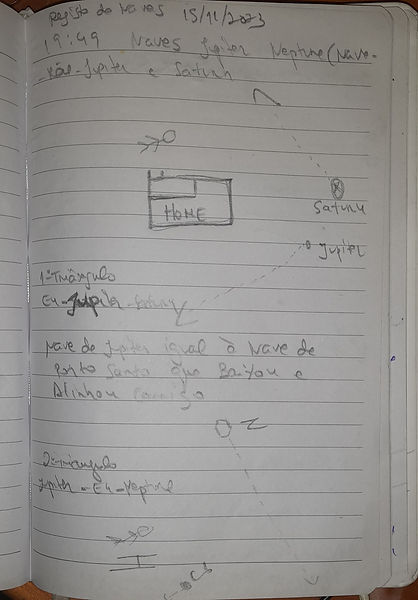 Registo de Naves 15/11/2023
19:49 Naves Jupiter Neptune (Nave-
-não-Jupiter e Saturn
HOME
Saturn
Jupiter
1º Triângulo
Eu-Jupiter-Saturn
Nave de Jupiter igual à Nave de
Porto Santo que Baixou e
Alinhou comigo
N
2º Triangulo
Jupiter-Eu-Neptune